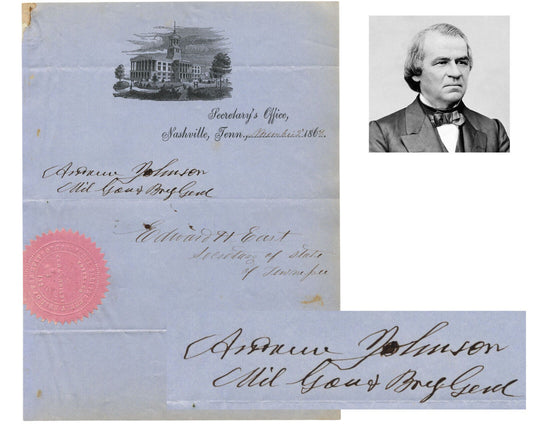 Secretary's Office,
Nashville, Tenn., 186
Andrew Johnson
Mil Gov & Brig Genl
Edward H East
Secretary of State
of Tennessee
Andrew Johnson
Mil Gov & Brig Genl